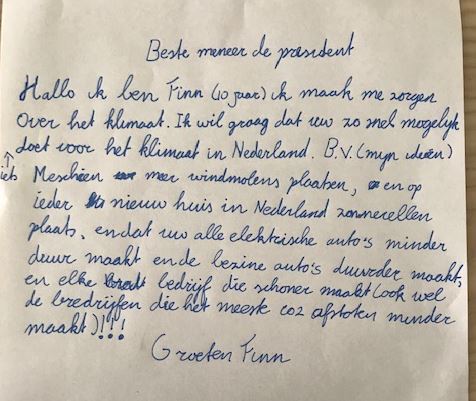 Beste meneer de president
Hallo ik ben Finn (10 jaar) ik maak me zorgen
Over het klimaat. Ik wil graag dat uw zo snel mogelijk
doet voor het klimaat in Nederland. B.V. (mijn ideeën)
iets Meschien meer windmolens plaatsen, en op
ieder nieuw huis in Nederland zonnecellen
plaats. en dat uw alle elektrische auto's minder
duur maakt en de bezine auto's duurder maakt,
en elke bedrijf die schoner maakt (ook wel
de bredrijfen die het meeste co2 afstoten minder
maakt)!!!
Groeten Finn